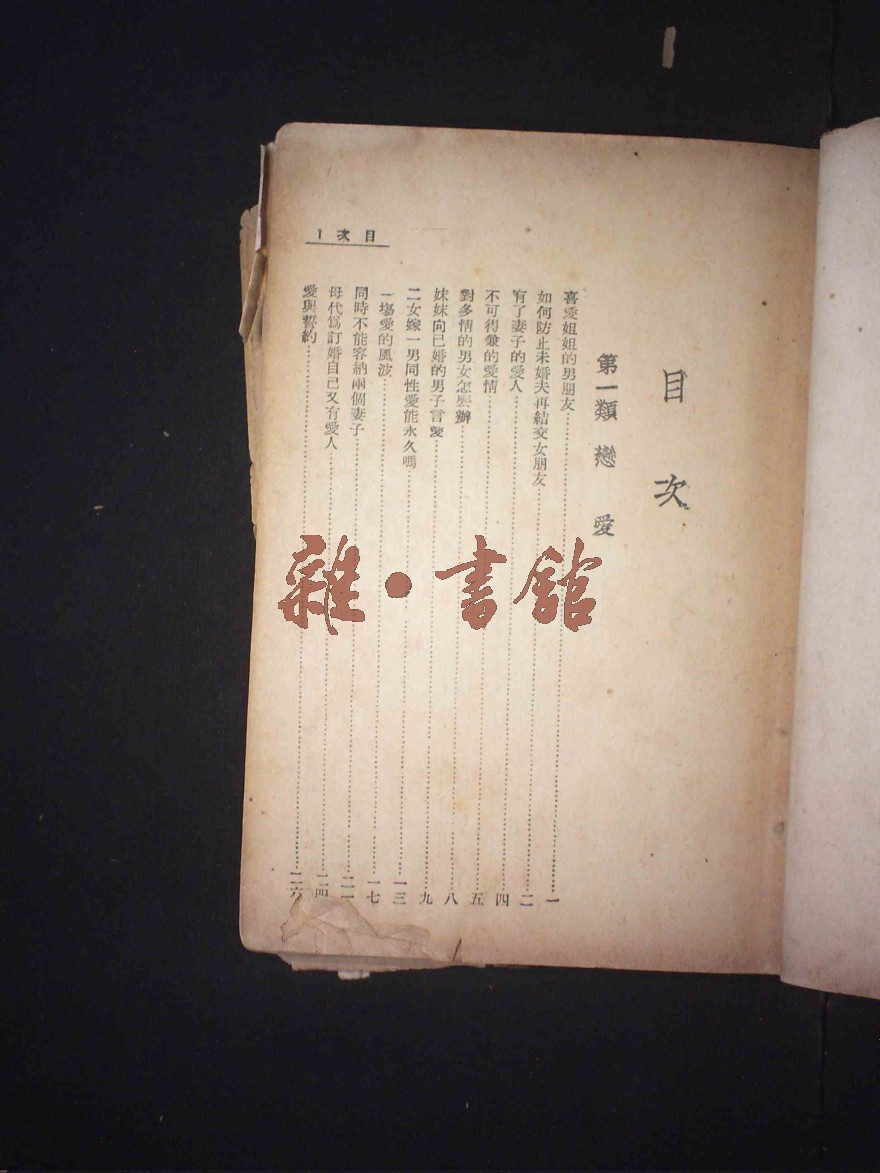 目次
第一類 戀愛
喜愛姐姐的男朋友……一
如何防止未婚夫再結交女朋友……二
有了妻子的愛人……四
不可得兼的愛情……五
對多情的男女怎麼辦……八
妹妹向已婚的男子言愛……九
二女嫁一男同性愛能永久嗎……一三
一場愛的風波……一七
同時不能容納兩個妻子……二一
母代爲訂婚自己又有愛人……二四
愛與誓約……二六
目次 1
雜·書館